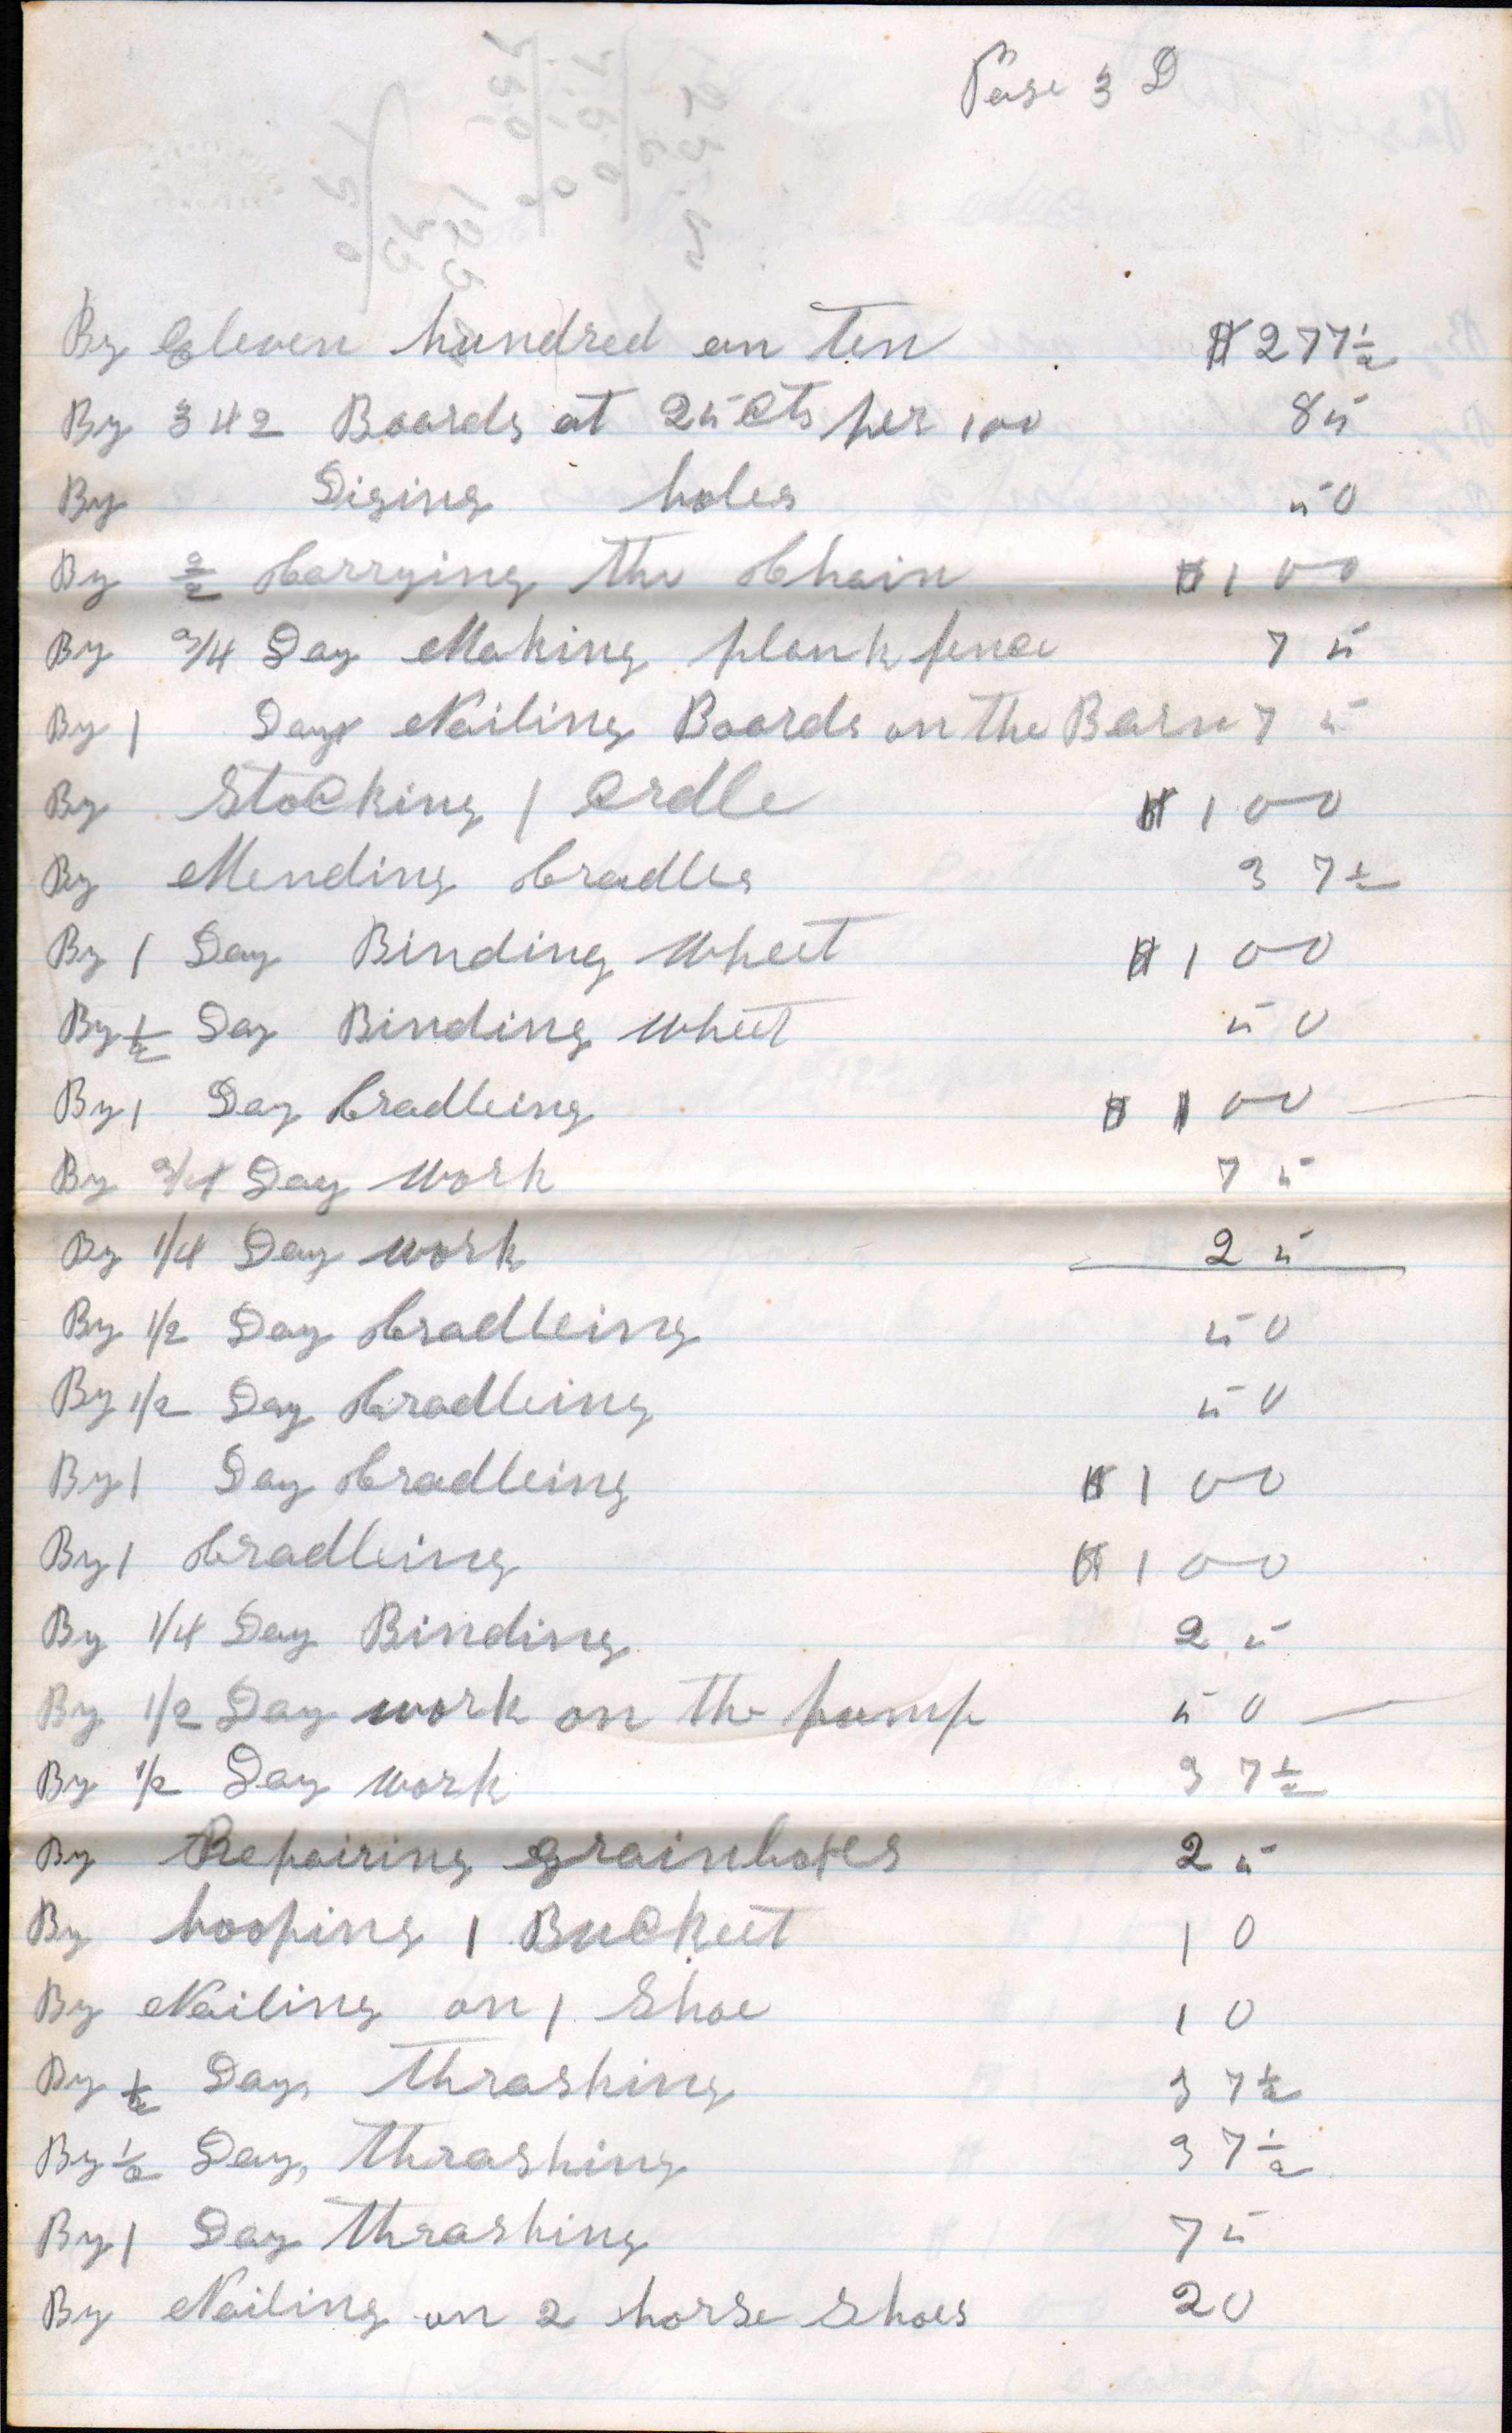 Page 3 D
By Eleven hundred an ten $277½
By 342 Boards at 25 Cts per 100 85
By Diging holes 50
By 2/2 Carrying the Chain $100
By 3/4 Day Making plank fence 75
By 1 Day Nailing Boards on the Barn 75
By Stocking 1 Crdle $100
By Mending Cradles 37½
By 1 Day Binding wheet $100
By ½ Day Binding wheet 50
By 1 Day Cradleing $100
By 3/4 Day work 75
By 1/4 Day work 25
By 1/2 Day Cradleing 50
By 1/2 Day Cradleing 50
By 1 Day Cradleing $100
By 1 Cradleing $100
By 1/4 Day Binding 25
By 1/2 Day work on the pump 50
By 1/2 Day work 37½
By Repairing grainboxes 25
By hooping 1 Buckeet 10
By Nailing on 1 Shoe 10
By ½ Day Thrashing 37½
By ½ Day Thrashing 37½
By 1 Day Thrashing 75
By Nailing on 2 horse Shoes 20